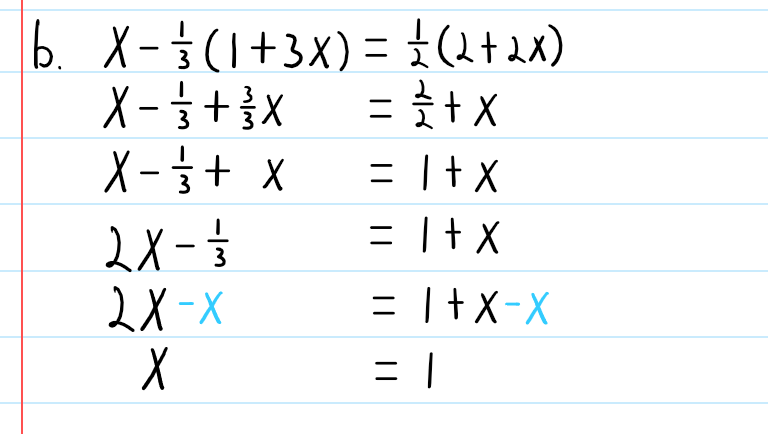 b. x - 1/3 (1 + 3x) = 1/2 (2 + 2x)
x - 1/3 + 3/3 x = 2/2 + x
x - 1/3 + x = 1 + x
2x - 1/3 = 1 + x
2x - x = 1 + x - x
x = 1